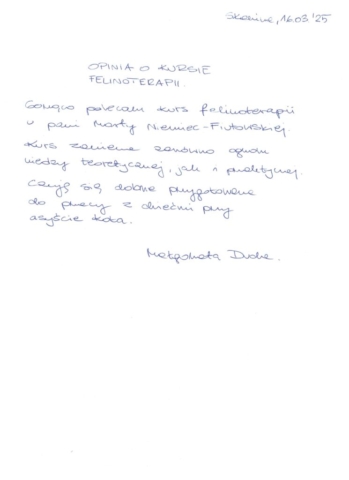 16.03 '25
OPINIA O KURSIE
FELINOTERAPII.
Gorąco polecam kurs felinoterapii
u pani Marty Niemiec-
Kurs zawiera zarówno ogrom
wiedzy teoretycznej, jak i praktycznej
Czuję się dobrze przygotowana
do pracy z dziećmi przy
asyście kota.
Małgorzata